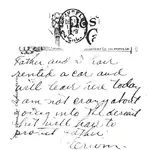 Father and I have
rented a car and
will leave here today.
I am not crazy about
going into the desert
but will have to
protect